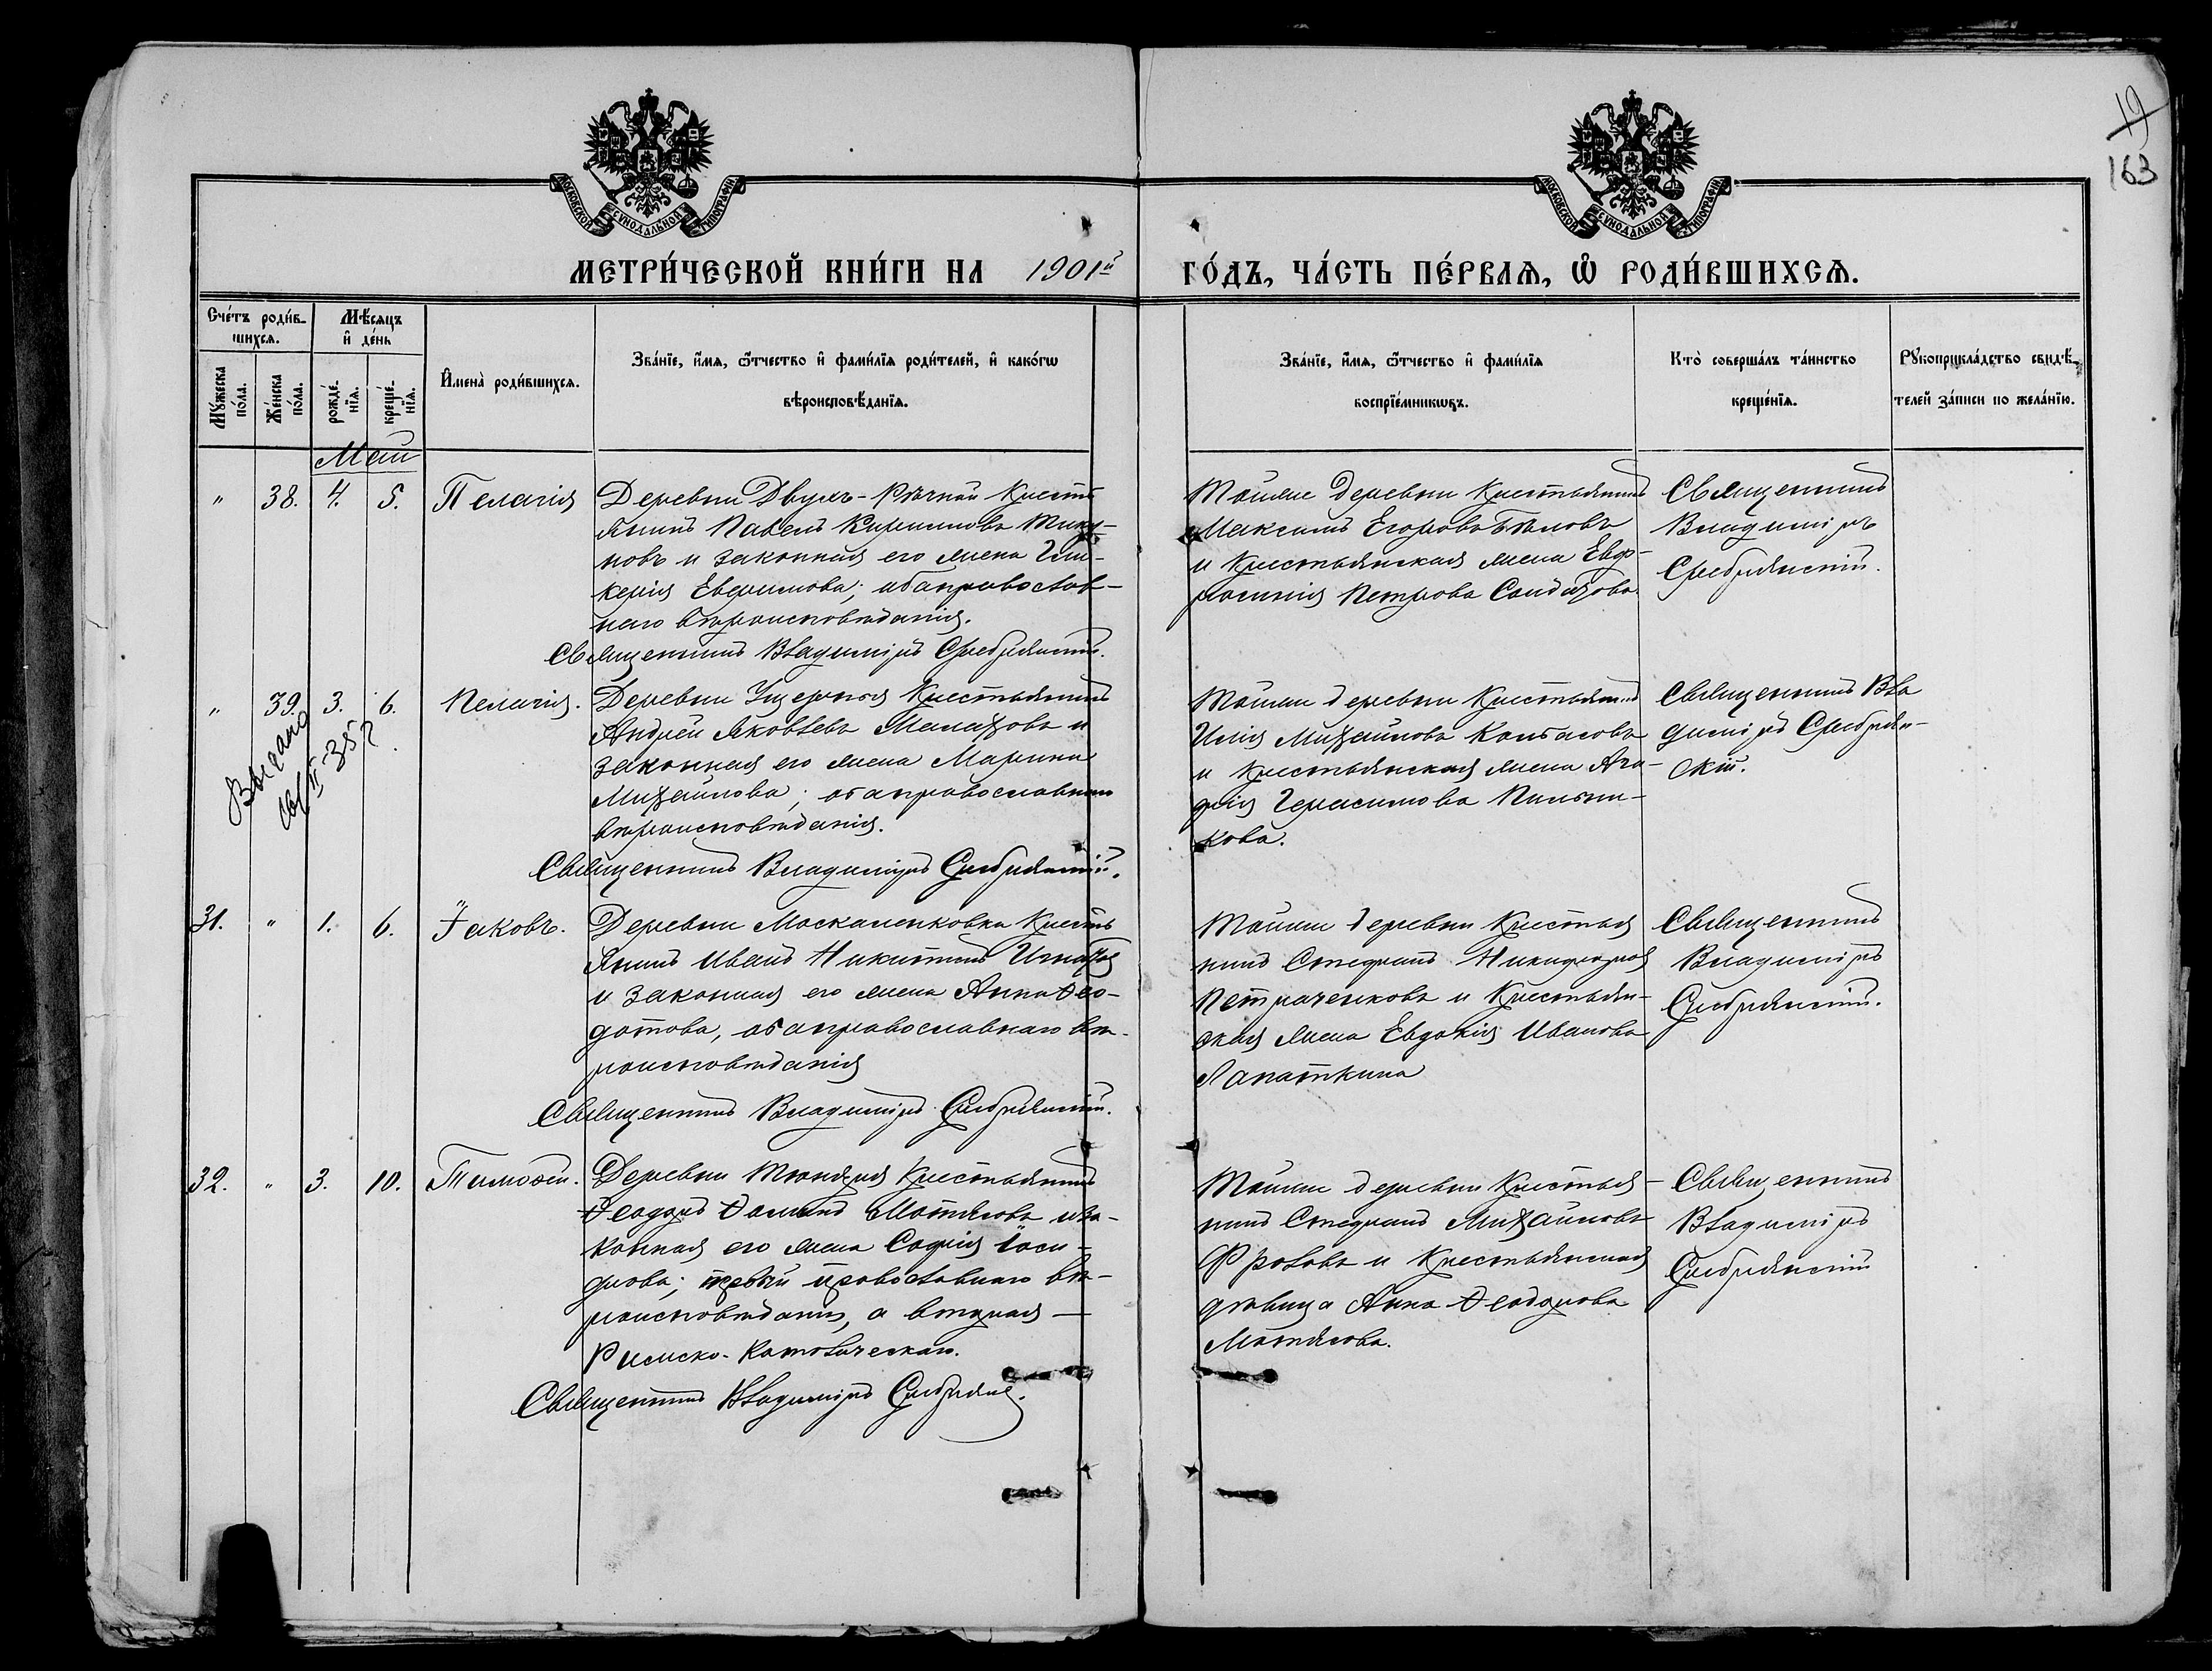 19
163
МОСКОВСКОЙ СѴНОДАЛЬНОЙ ТИПОГРАФІИ
МОСКОВСКОЙ СѴНОДАЛЬНОЙ ТИПОГРАФІИ
МЕТРИ́ЧЕСКОЙ КНИ́ГИ НА 1901й ГО́ДЪ, ЧА́СТЬ ПЕ́РВАѦ, Ѽ РОДИ́ВШИХСѦ.
Сче́тъ роди́в-
шихсѧ.
Мѣ́сѧцъ
и҆ де́нь
Мꙋ́жеска по́ла.
Же́нска по́ла.
рожде́-нїѧ.
креще́-нїѧ.
И҆мена̀ роди́вшихсѧ.
Зва́нїе, и҆́мѧ, ѻ҆́тчество и҆ фами́лїѧ роди́телей, и҆ како́гѡ
вѣроисповѣ́данїѧ.
Зва́нїе, и҆́мѧ, ѻ҆́тчество и҆ фами́лїѧ
воспрїе́мникѡвъ.
Кто̀ соверша́лъ та́инство
креще́нїѧ.
Рꙋкоприкла́дство свидѣ́-
телей за́писи по жела́нїю.
Май
" 38. 4. 5. Пелагія
Деревни Двухъ-Рѣчной Кресть
янинъ Павелъ Кирилловъ
новъ и законная его жена Гли-
керія Ефимова; оба православ-
наго вѣроисповѣданія.
Священникъ Владиміръ Сребрянскій.
Тойже деревни Крестьянинъ
Максимъ Егоровъ Бѣловъ
и Крестьянская жена Евф-
росинія Петрова
Священникъ
Владиміръ
Сребрянскій.
" 39. 3. 6. Пелагія.
Выдано
Деревни Ущерпья Крестьянинъ
Андрей Яковлевъ Малаховъ и
законная его жена Марина
Михайлова; оба православнаго
вѣроисповѣданія.
Священникъ Владиміръ Сребрянскій.
Тойже деревни Крестьянинъ
Илія Михайловъ Колбасовъ
и Крестьянская жена Ага-
фія Герасимова
кова.
Священникъ Вла
диміръ Сребрян-
скій.
31. " 1. 6. Іаковъ.
Деревни Москаленковки Кресть
янинъ Иванъ Никитинъ
и законная его жена Анна Ѳео-
дотова, оба православнаго вѣ-
роисповѣданія
Священникъ Владиміръ Сребрянскій.
Тойже деревни Крестья
нинъ Стефанъ Никифоровъ
Петраченковъ и Крестьян-
ская жена Евдокія Иванова
Лапаткина
Священникъ
Владиміръ
Сребрянскій.
32. " 3. 10. Тимоѳей.
Деревни Крестьянинъ
Ѳеодоръ Ѳоминъ Мотясовъ и за-
конная его жена Софія Іоси-
фова; первый православнаго вѣ-
роисповѣданія, а вторая —
Римско-Католическаго.
Священникъ Владиміръ Сребрянс.
Тойже деревни Крестья-
нинъ Стефанъ Михайловъ
Фроловъ и Крестьянская
дѣвица Анна Ѳеодорова
Мотясова.
Священникъ
Владиміръ
Сребрянскій